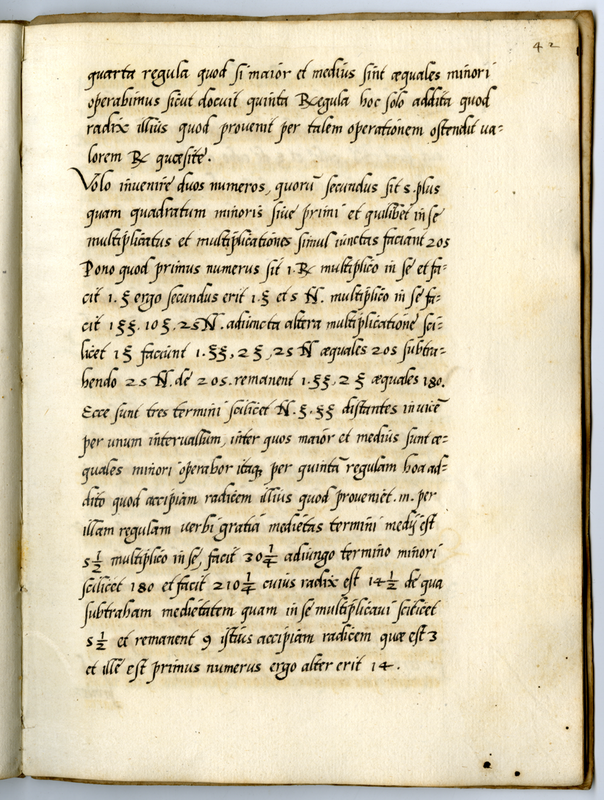 42
quarta regula quod si maior et medius sint æquales minori
operabimus sicut docuit quinta Regula hoc solo addita quod
radix illius quod provenit per talem operationem ostendit va-
lorem ℞ quæsitæ.
Volo invenire duos numeros, quorũ secundus sit 5. plus
quam quadratum minoris sive primi et quilibet in se
multiplicatus et multiplicationes simul iunctas faciant 205
Pono quod primus numerus sit 1. ℞ multiplico in se et fa-
cit 1. ʒ ergo secundus erit 1. ʒ et 5 N. multiplico in se fa-
cit 1 ʒʒ. 10 ʒ. 25 N. adiuncta altera multiplicatione sci-
licet 1 ʒ faciunt 1. ʒʒ, 2 ʒ, 25 N æquales 205 subtra-
hendo 25 N. de 205. remanent 1. ʒʒ, 2 ʒ æquales 180.
Ecce sunt tres termini scilicet N. ʒ. ʒʒ distantes in vicẽ
per unum intervallum, inter quos maior et medius sunt æ-
quales minori operabor itaq; per quintã regulam hoc ad-
dito quod accipiam radicem illius quod proveniet. m. per
illam regulam verbi gratiã medietas termini medij est
5 1/2 multiplico in se, facit 30 1/4 adiungo termino minori
scilicet 180 et facit 210 1/4 cuius radix est 14 1/2 de qua
subtraham medietatem quam in se multiplicavi scilicet
5 1/2 et remanent 9 istius accipiam radicem quæ est 3
et ille est primus numerus ergo alter erit 14.